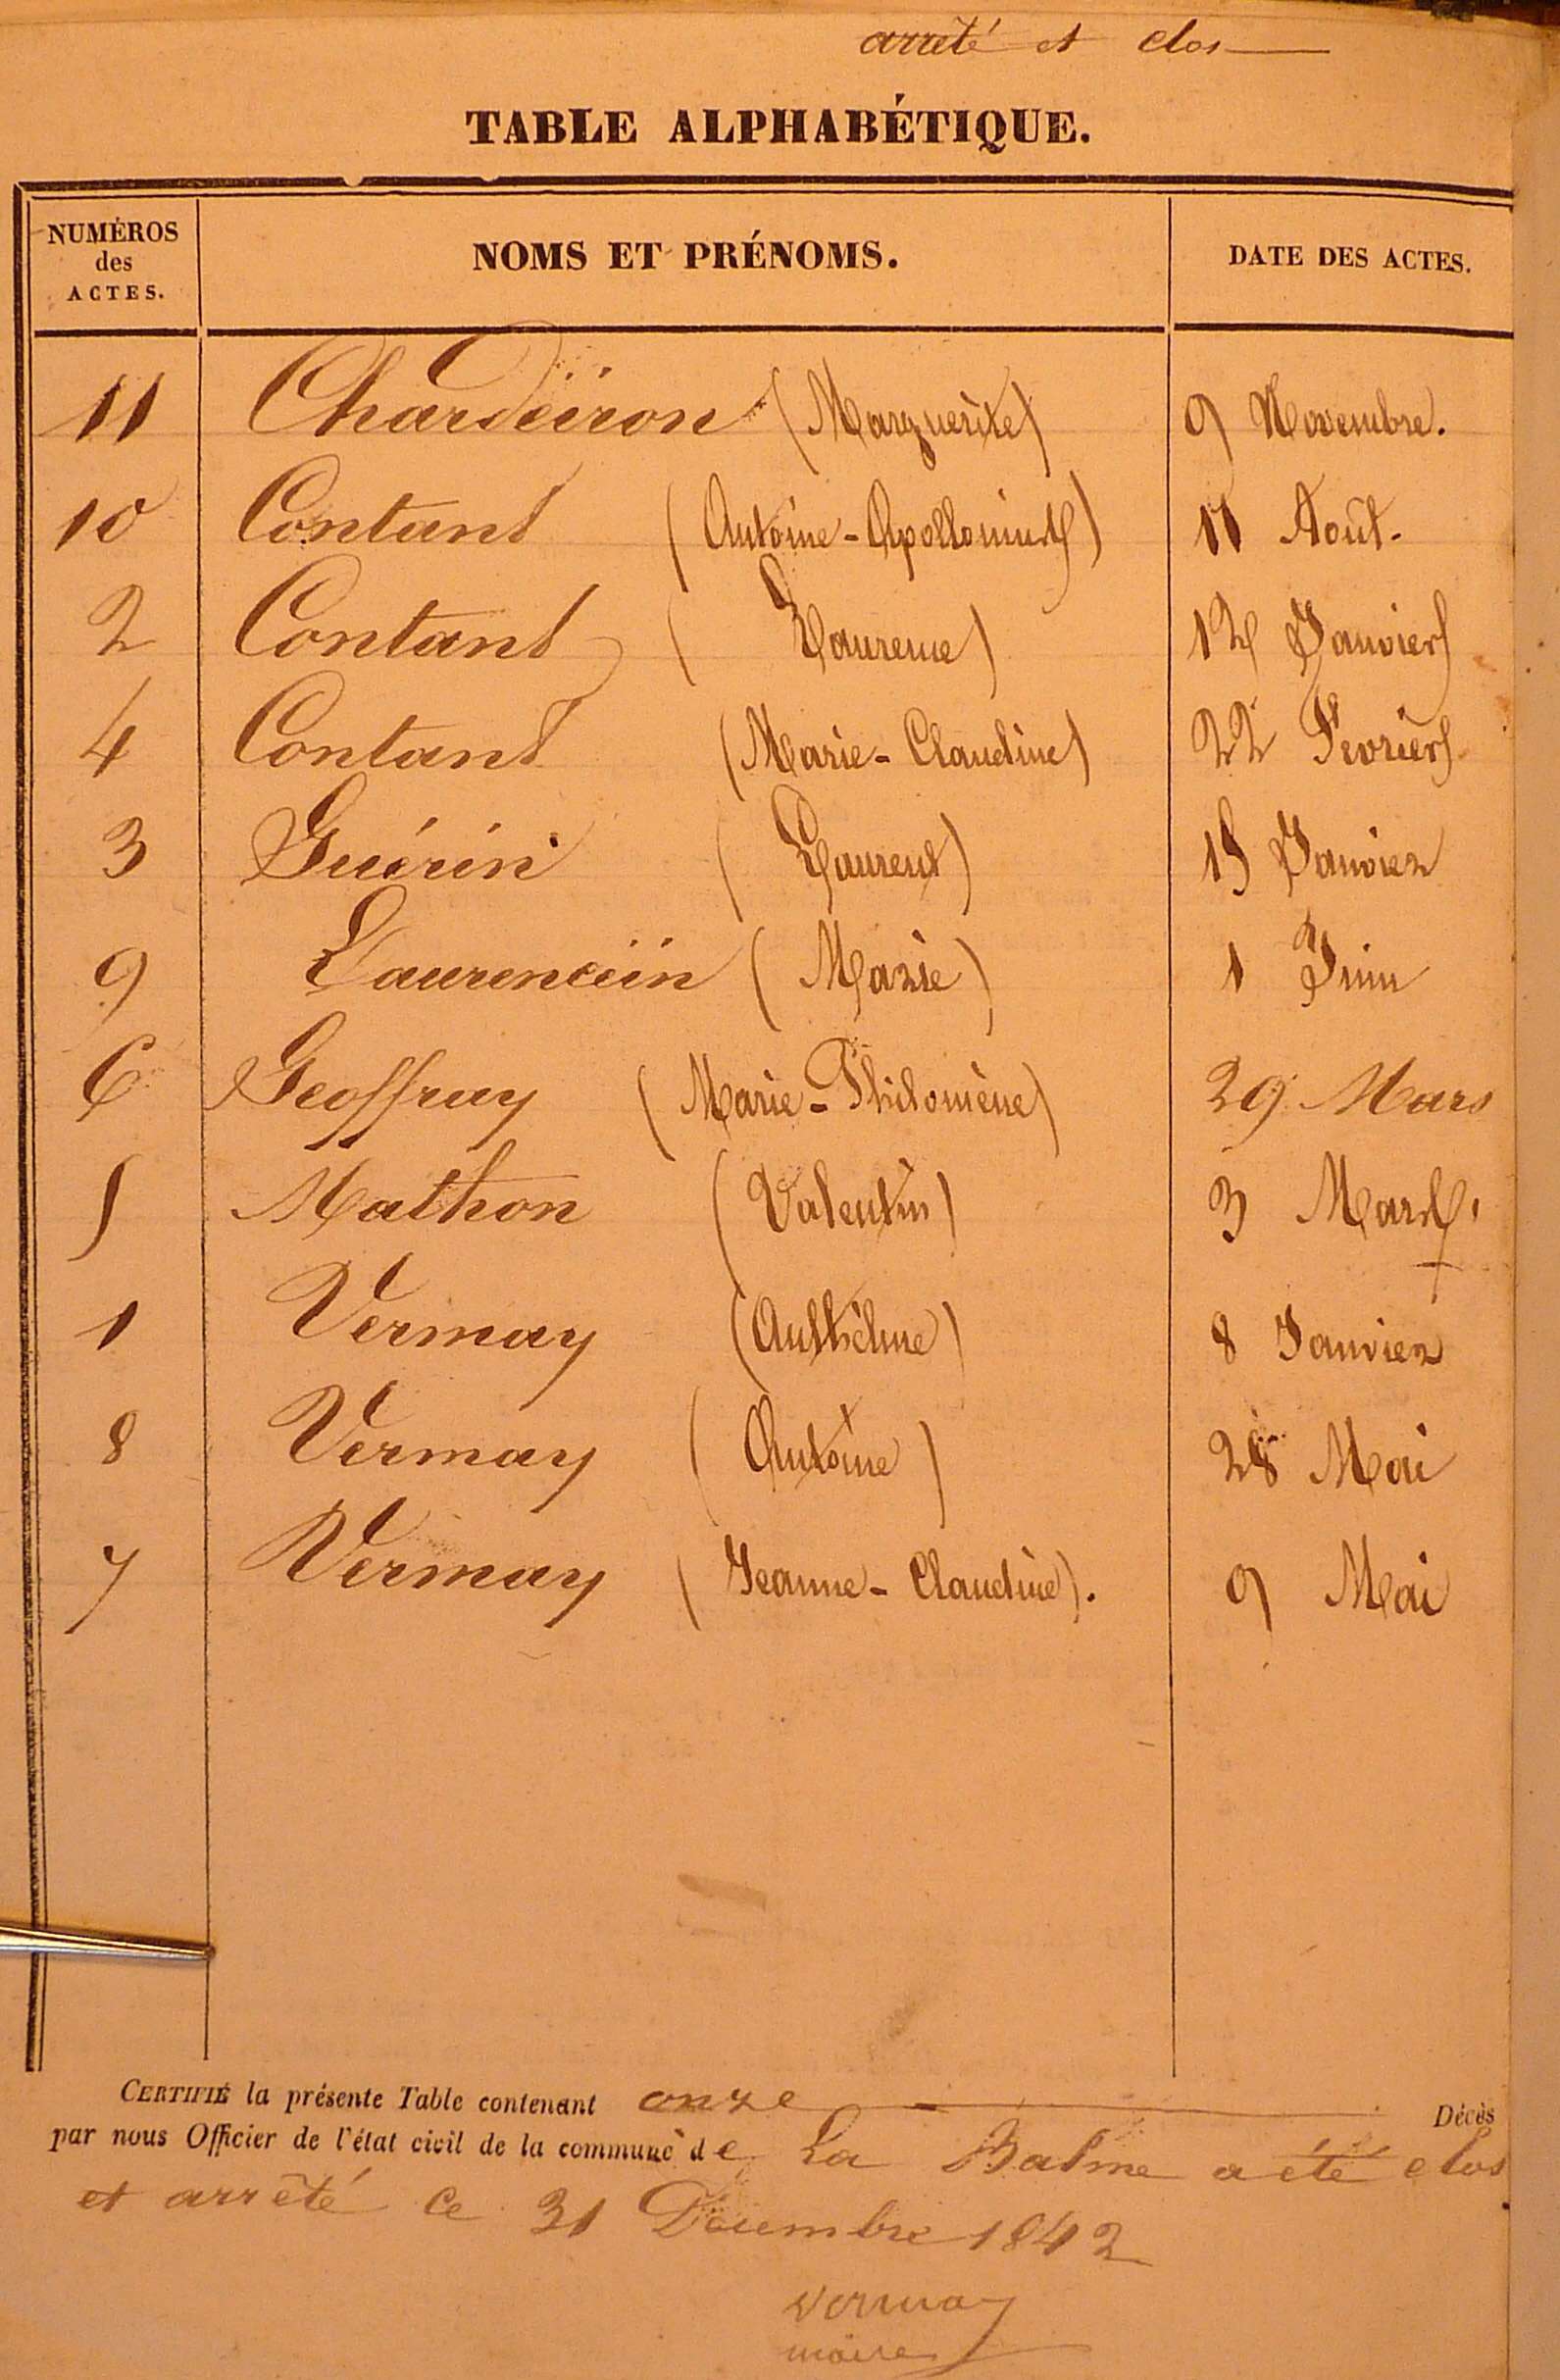 arrêté et clos
TABLE ALPHABÉTIQUE.
NUMÉROS des ACTES. NOMS ET PRÉNOMS. DATE DES ACTES.
11 Chardeiron (Marguerite) 9 Novembre.
10 Contant (Antoine-Apollinard) 11 Août.
2 Contant (Laurence) 12 Janvier
4 Contant (Marie-Claudine) 22 Fevrier
3 Guérin (Laurent) 15 Janvier
9 Laurencein (Marie) 1 Juin
6 Geoffray (Marie-Philomène) 29 Mars
5 Mathon (Valentin) 3 Mars
1 Vermay (Anthelme) 8 Janvier
8 Vermay (Antoine) 28 Mai
7 Vermay (Jeanne-Claudine). 9 Mai
CERTIFIÉ la présente Table contenant onze Décès
par nous Officier de l'état civil de la commune de La Balme a été clos
et arrêté ce 31 Décembre 1842
vermay
maire